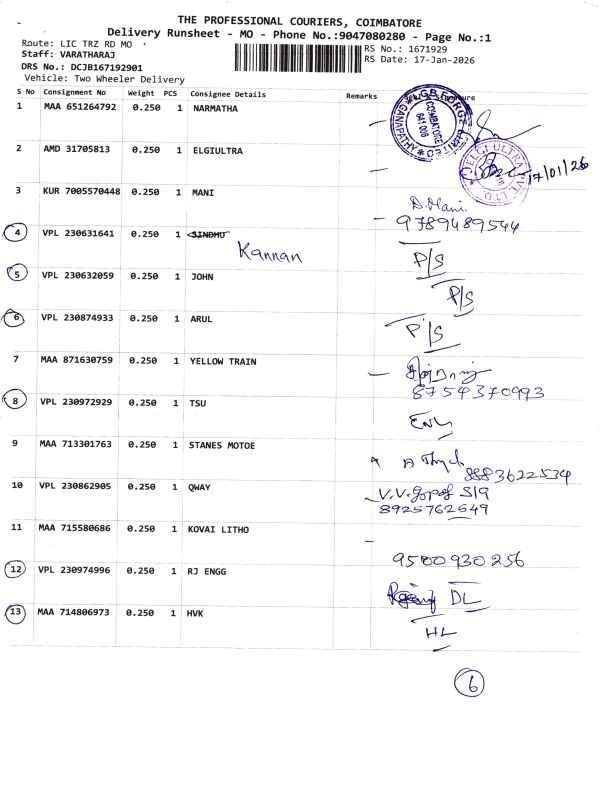 THE PROFESSIONAL COURIERS, COIMBATORE
Delivery Runsheet - MO - Phone No.:9047080280 - Page No.:1
Route: LIC TRZ RD MO
Staff: VARATHARAJ
DRS No.: DCJB167192901
Vehicle: Two Wheeler Delivery
RS No.: 1671929
RS Date: 17-Jan-2026
S No Consignment No Weight PCS Consignee Details Remarks
1 MAA 651264792 0.250 1 NARMATHA
COIMBATORE 641 006 GANAPATHY
2 AMD 31705813 0.250 1 ELGIULTRA
ELGI ULTRA PVT. LTD 17/01/26
3 KUR 7005570448 0.250 1 MANI
D. Mani
9789489544
4 VPL 230631641 0.250 1 SINDHU Kannan P/S
5 VPL 230632059 0.250 1 JOHN P/S
6 VPL 230874933 0.250 1 ARUL P/S
7 MAA 871630759 0.250 1 YELLOW TRAIN
8754370993
8 VPL 230972929 0.250 1 TSU
9 MAA 713301763 0.250 1 STANES MOTOE
8883622534
10 VPL 230862905 0.250 1 QWAY
V.V.
8925762649
11 MAA 715580686 0.250 1 KOVAI LITHO
9500930256
12 VPL 230974996 0.250 1 RJ ENGG DL
13 MAA 714806973 0.250 1 HVK HL
6